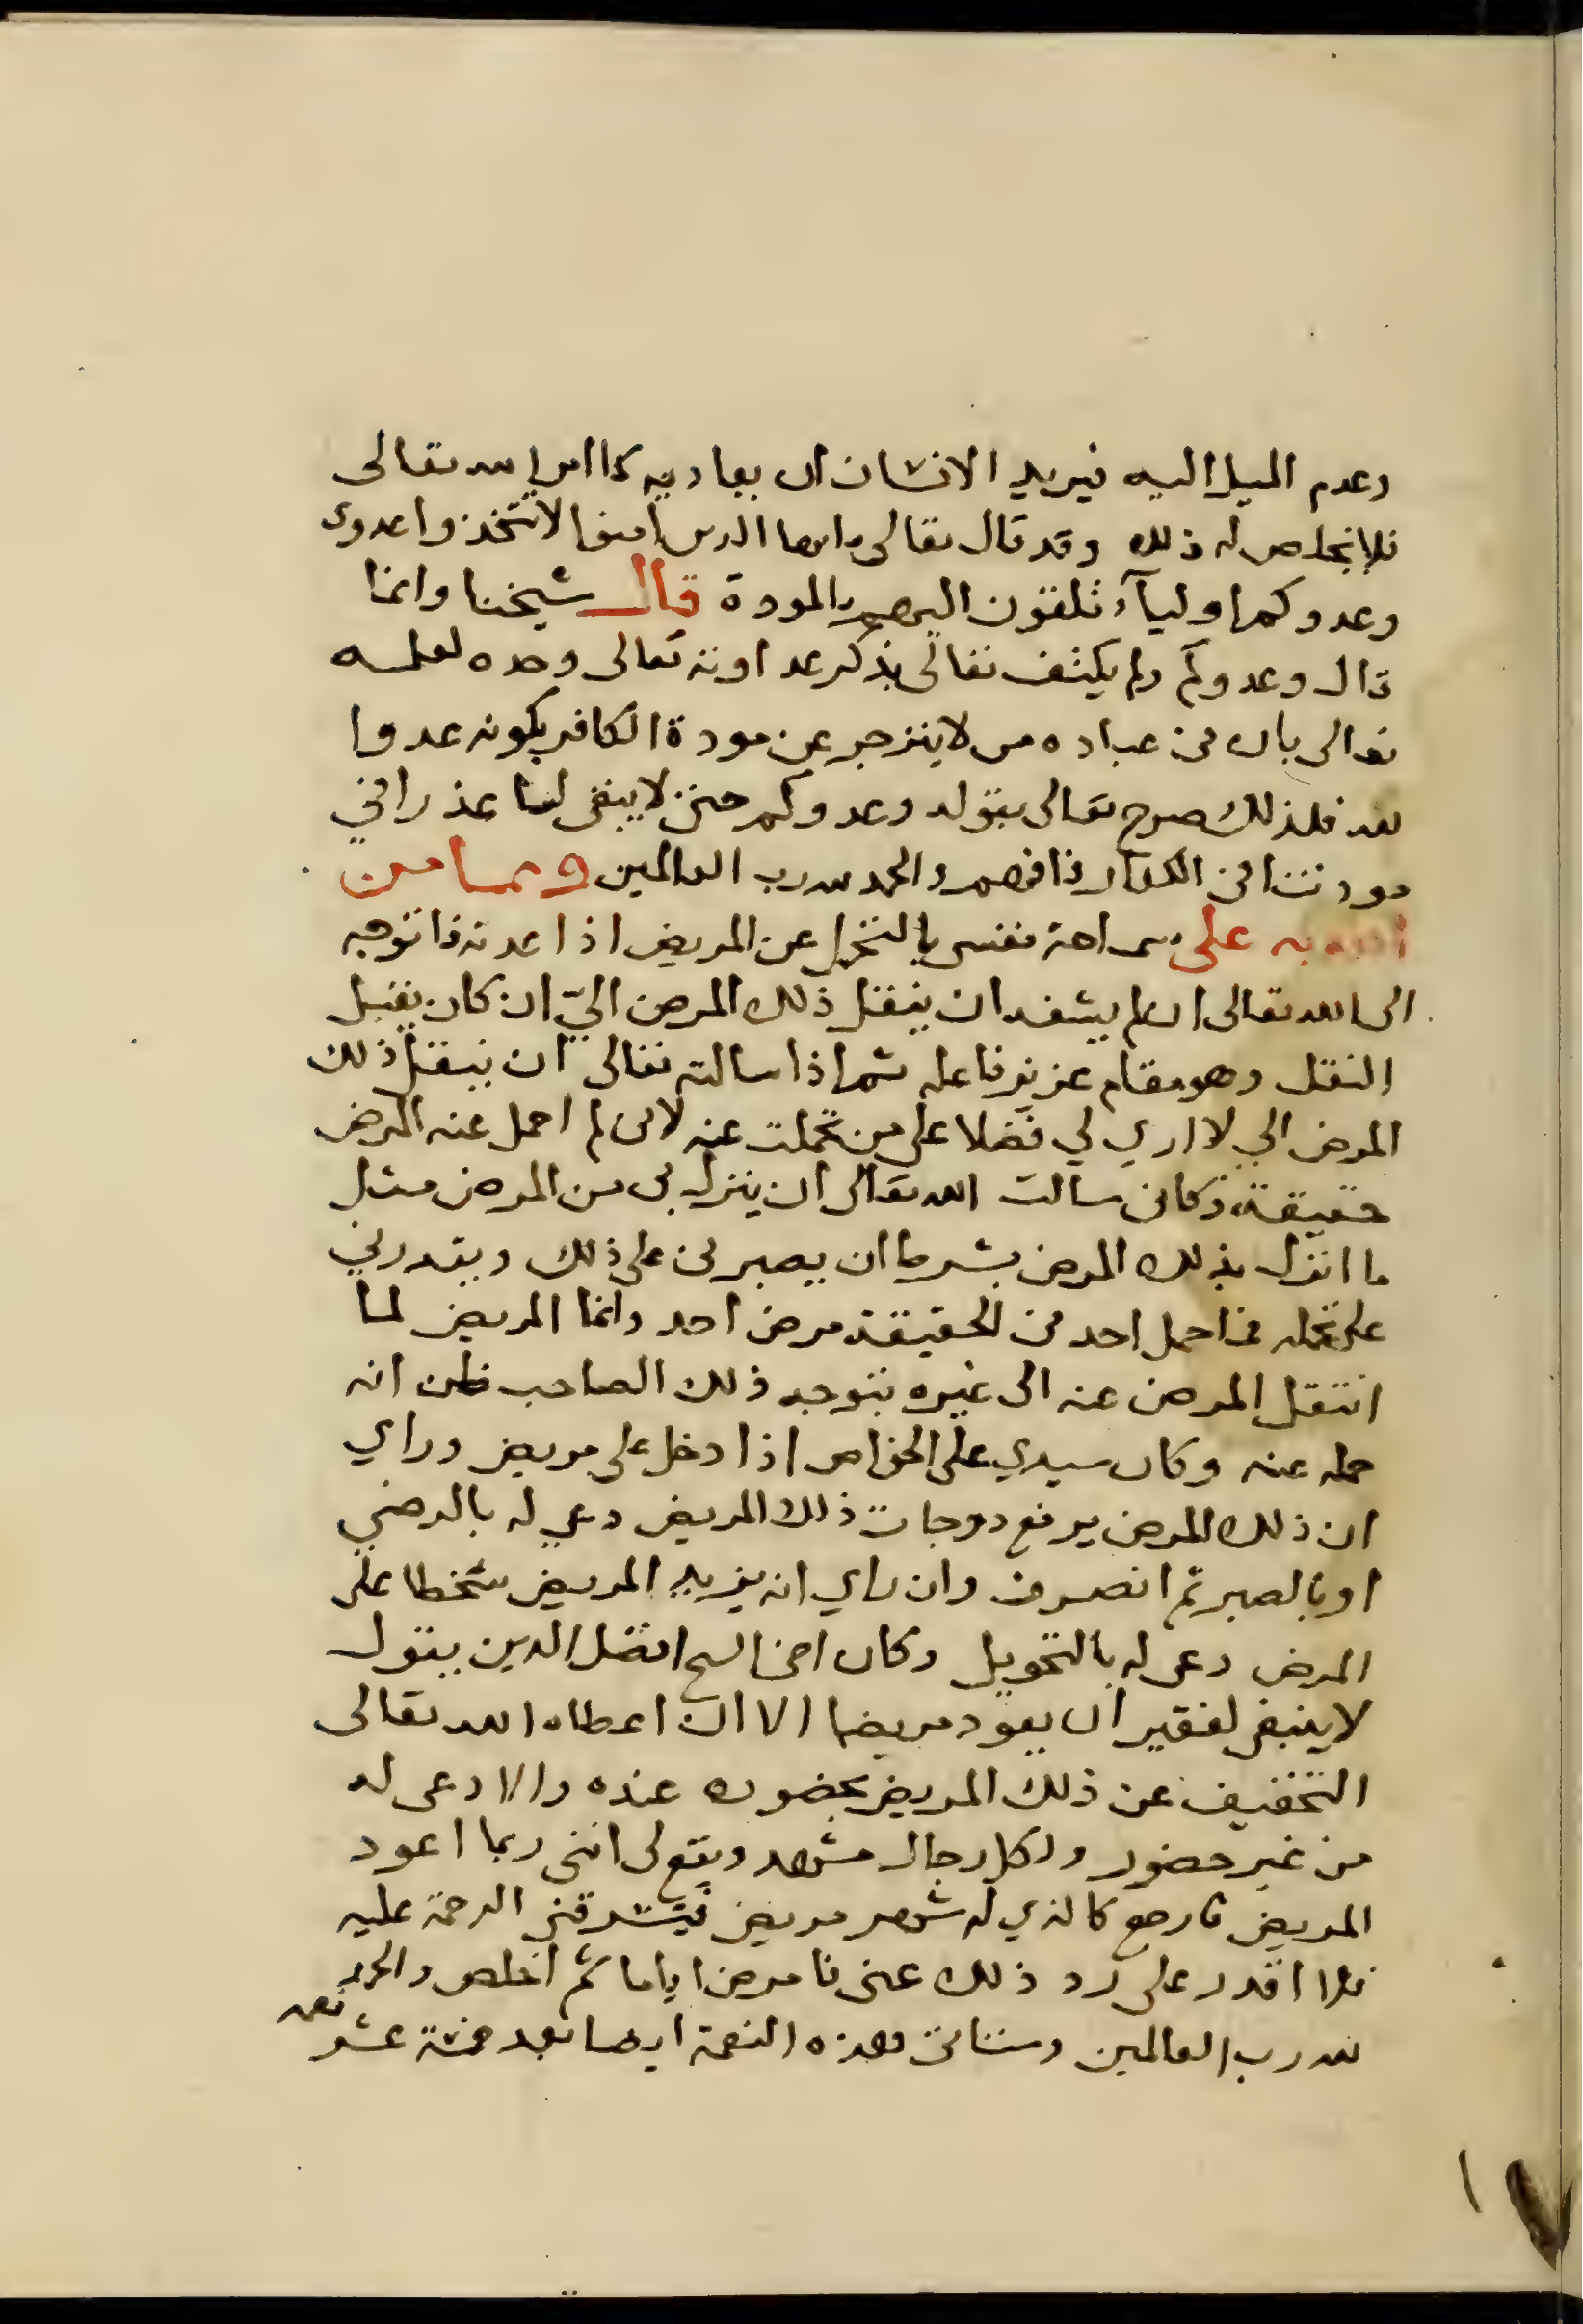 وعدم الميل اليه فيريد الانسان ان يعاديه كما امر الله تعالى
فلا يخلص له ذلك وقد قال تعالى يا ايها الذين امنوا لا تتخذوا عدوى
وعدوكم اوليآء تلقون اليهم بالمودة قال شيخنا وانما
قال وعدوكم ولم يكتف تعالى بذكر عداوته تعالى وحده لعلمه
تعالى بان من عباده من لا ينزجر عن مودة الكافر بكونه عدوا
لله فلذلك صرح تعالى بقوله وعدوكم حتى لا يبقى لنا عذرا في
مودتنا في الكفار فافهم والحمد لله رب العالمين ومما من
الله به على مسامحة نفسي بالتحمل عن المريض اذا عدته فاتوجه
الى الله تعالى ان لم يشفه ان ينقل ذلك المرض اليّ ان كان يقبل
النقل وهو مقام عزيز فاعله ثم اذا سالته تعالى ان ينقل ذلك
المرض الي لا اري لي فضلا على من تحملت عنه لانى لم احمل عنه المرض
حقيقة فكانى سالت الله تعالى ان ينزل بى من المرض مثل
ما انزل بذلك المرض بشرط ان يصبرنى على ذلك ويقدرني
على تحمله فما حمل احد في الحقيقة مرض احد وانما المريض لما
انتقل المرض عنه الى غيره بتوجه ذلك الصاحب ظن انه
حمله عنه وكان سيدي على الخواص اذا دخل على مريض وراي
ان ذلك المرض يرفع درجات ذلك المريض دعي له بالرضي
او بالصبر ثم انصرف وان راي انه يزيد المريض سخطا على
المرض دعى له بالتحويل وكان اخى الشيخ افضل الدين يقول
لا ينبغي لفقير ان يعود مريضا الا ان اعطاه الله تعالى
التخفيف عن ذلك المريض بحضوره عنده والا دعى له
من غير حضور ولكل رجال مشهد ويقع لى اننى ربما اعود
المريض فارجع كالذي له شهر مريض فتسرقنى الرحمة عليه
فلا اقدر على رد ذلك عنى فامرض اياما ثم اخلص والحمد
لله رب العالمين وستاتى هذه النعمة ايضا بعد خمسة عشر
نعمه
١٧